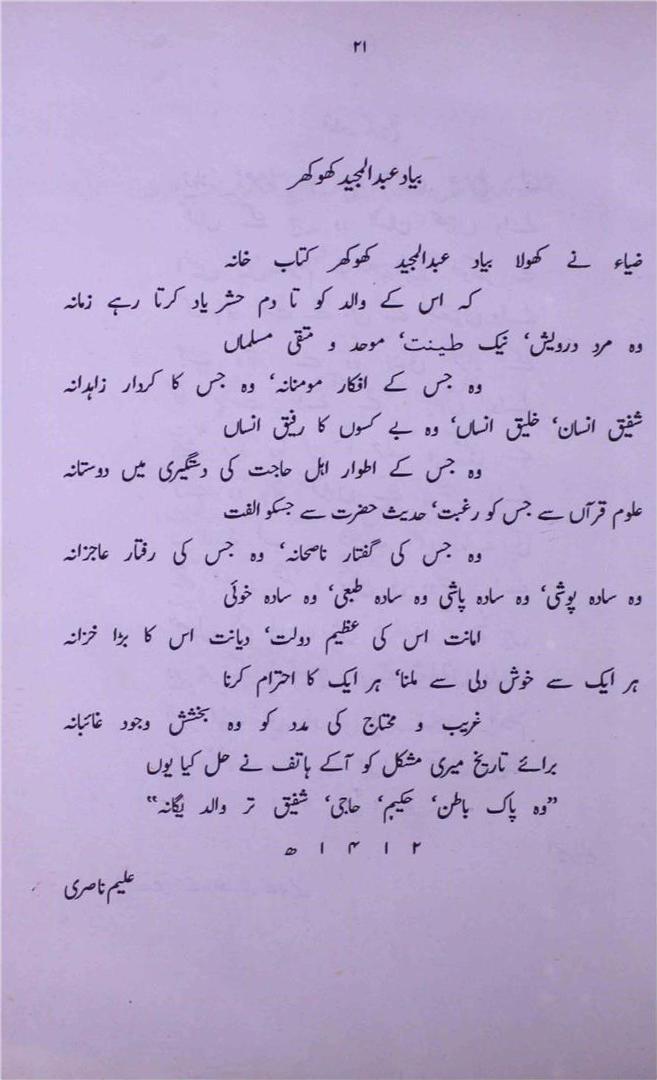 ۲۱
بیاد عبدالمجید کھوکھر
ضیاء نے کھولا بیاد عبدالمجید کھوکھر کتاب خانہ
کہ اس کے والد کو تا دم حشر یاد کرتا رہے زمانہ
وہ مرد درویش، نیک طینت، موحد و متقی مسلماں
وہ جس کے افکار مومنانہ، وہ جس کا کردار زاہدانہ
شفیق انسان، خلیق انساں، وہ بے کسوں کا رفیق انساں
وہ جس کے اطوار اہل حاجت کی دستگیری میں دوستانہ
علوم قرآں سے جس کو رغبت، حدیث حضرت سے جسکو الفت
وہ جس کی گفتار ناصحانہ، وہ جس کی رفتار عاجزانہ
وہ سادہ پوشی، وہ سادہ پاشی وہ سادہ طبعی، وہ سادہ خوئی
امانت اس کی عظیم دولت، دیانت اس کا بڑا خزانہ
ہر ایک سے خوش دلی سے ملنا، ہر ایک کا احترام کرنا
غریب و محتاج کی مدد کو وہ بخشش وجود غائبانہ
برائے تاریخ میری مشکل کو آکے ہاتف نے حل کیا یوں
”وہ پاک باطن، حکیم، حاجی، شفیق تر والد یگانہ“
۱ ۴ ۱ ۲ ھ
علیم ناصری